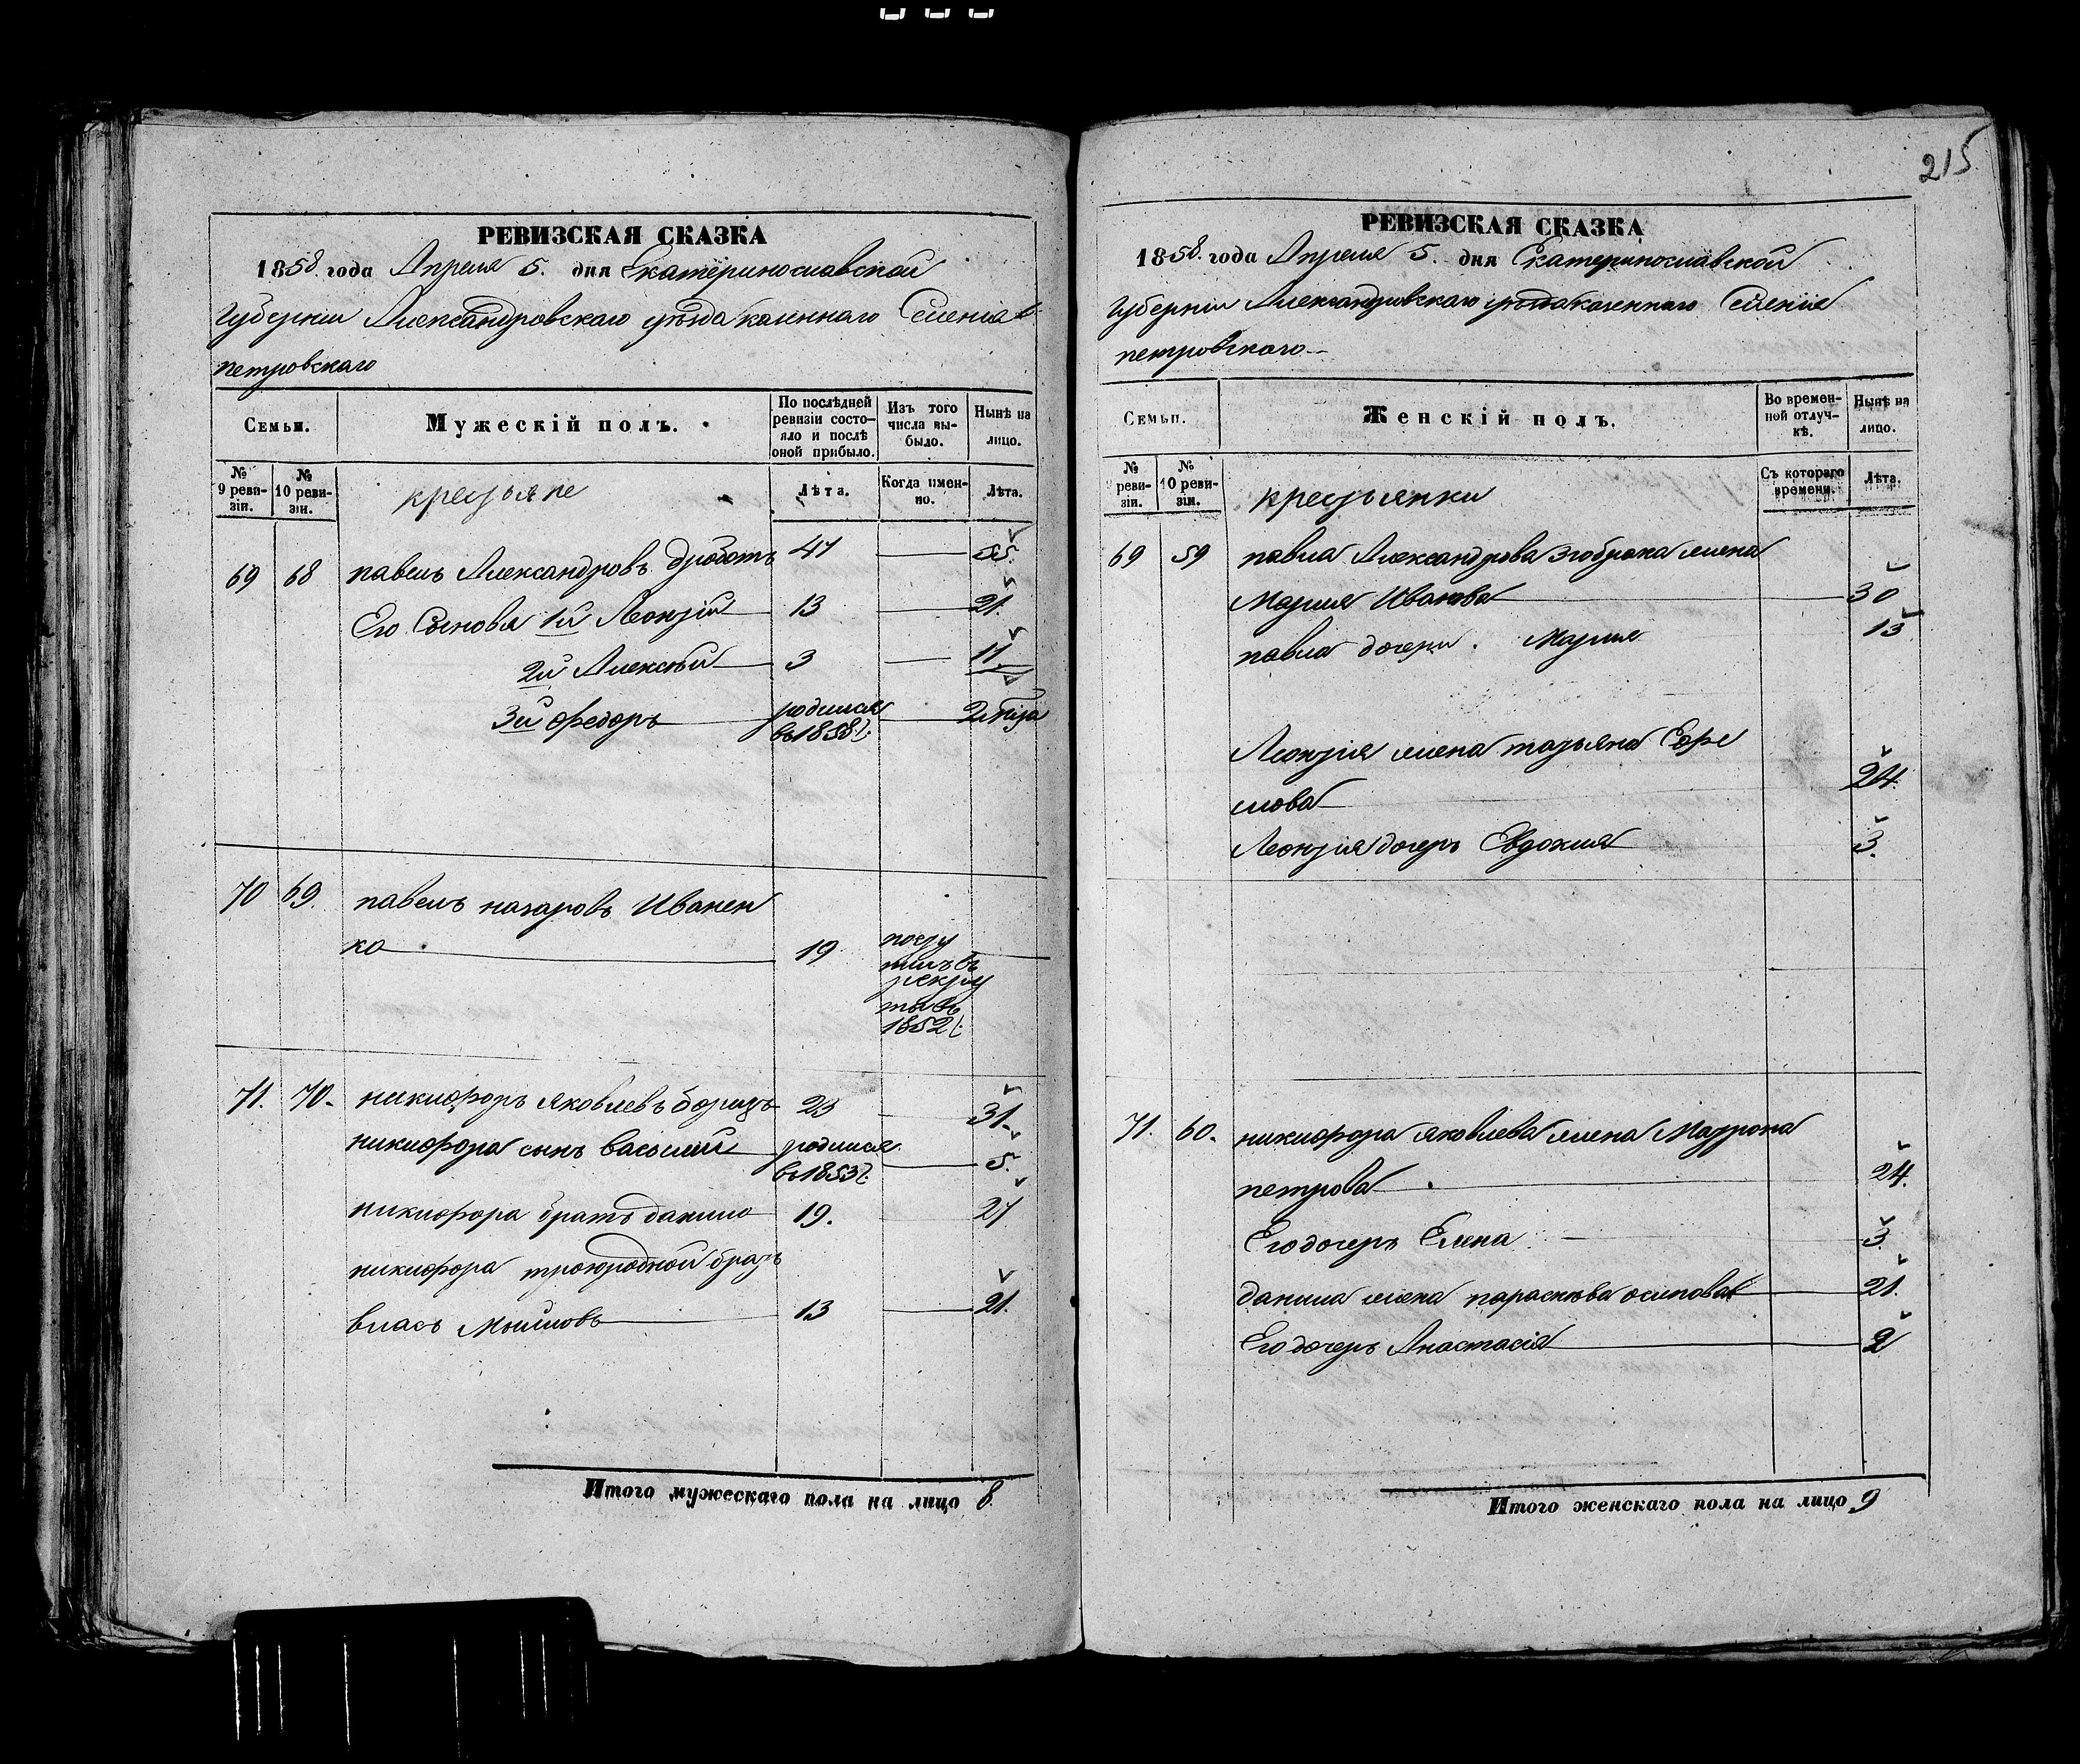 215
РЕВИЗСКАЯ СКАЗКА
1858. года Апреля 5. дня Екатеринославской
Губернии Александровскаго уѣзда казеннаго Селенія
петровскаго
Семьи.
Мужескій полъ.
По послѣдней ревизіи состояло и послѣ оной прибыло.
Изъ того числа выбыло.
Нынѣ на лицо.
№ 9 ревизіи.
№ 10 ревизіи.
крестьяне
Лѣта.
Когда именно.
Лѣта.
69 68 павелъ Александровъ Дроботъ 47 55.
Его Сыновья 1й Леонтій 13 21.
2й Алексѣй 3 11.
3й Федоръ родился въ 1858 г. 2
70 69. павелъ назаровъ Иванен
ко 19 посту
пилъ въ
рекру
ты въ
1852 г.
71. 70. никифоръ яковлевъ 23 31.
никифора сынъ василий родился въ 1853 г. 5.
никифора братъ данило 19. 27
никифора троюродной братъ
власъ 13 21.
Итого мужескаго пола на лицо 8.
РЕВИЗСКАЯ СКАЗКА
1858. года Апреля 5. дня Екатеринославской
Губернии Александровскаго уѣзда казеннаго Селения
петровскаго
Семьи.
Женскій полъ.
Во временной отлучкѣ.
Нынѣ на лицо.
№ ревизіи.
№ 10 ревизіи.
крестьянки
Съ котораго времени.
Лѣта.
69 59 павла Александрова 3го брака жена
Мария Иванова 30
павла дочери. Мария 13
Леонтия жена татьяна Ефре
мова 24.
Леонтия дочерь Евдокия 3.
71. 60. никифора яковлева жена Матрона
петрова 24.
Его дочерь Елена 3.
данила жена параскева осипова 21.
Его дочерь Анастасія 2
Итого женскаго пола на лицо 9